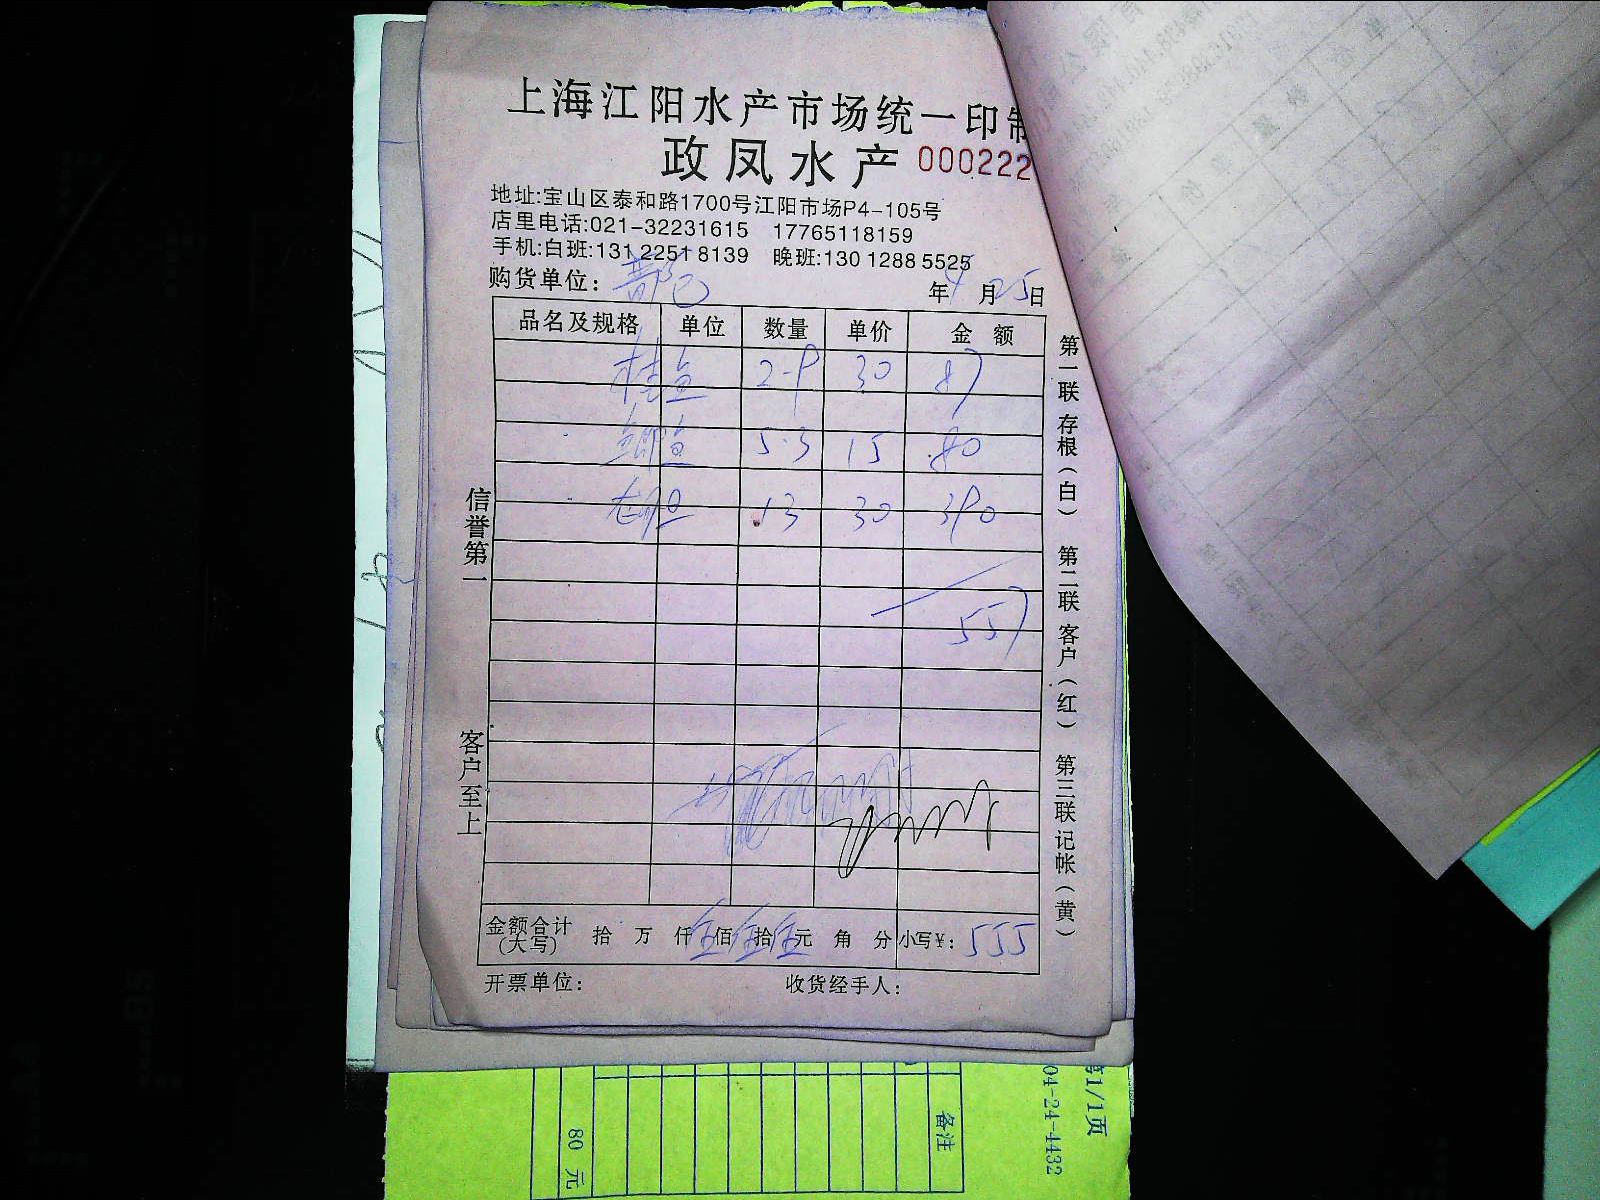 上海江阳水产市场统一印制
政凤水产 000222
地址:宝山区泰和路1700号江阳市场P4-105号
店里电话:021-32231615 17765118159
手机:白班:131 2251 8139 晚班:130 1288 5525
购货单位: 年4月25日
品名及规格 单位 数量 单价 金额
桂鱼 2.9 30 87
鲫鱼 5.3 15 80
13 30 390
557
金额合计(大写) 拾 万 仟伍佰伍拾伍元 角 分 小写¥: 555
开票单位: 收货经手人:
信誉第一
客户至上
第一联 存根(白) 第二联 客户(红) 第三联 记帐(黄)
备注
80 元
第1/1页
04-24-4432